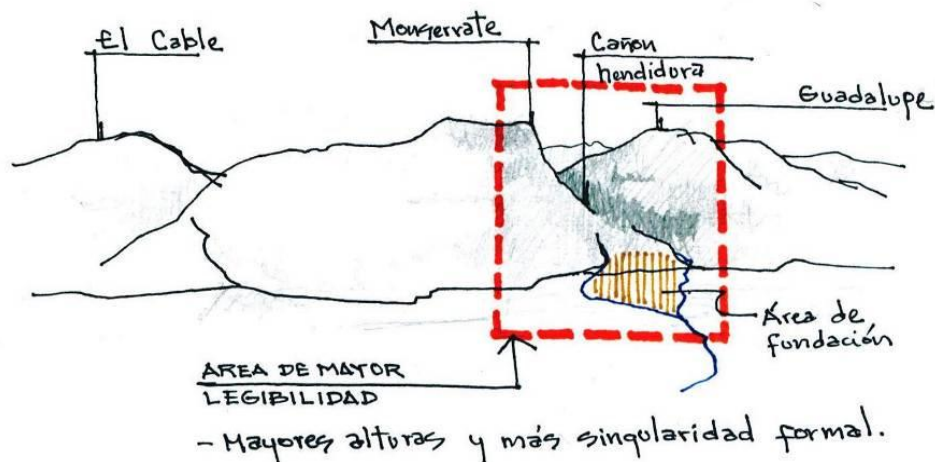 El Cable
Monserrate
Cañon
hendidura
Guadalupe
Área de
fundación
AREA DE MAYOR
LEGIBILIDAD
- Mayores alturas y más singularidad formal.